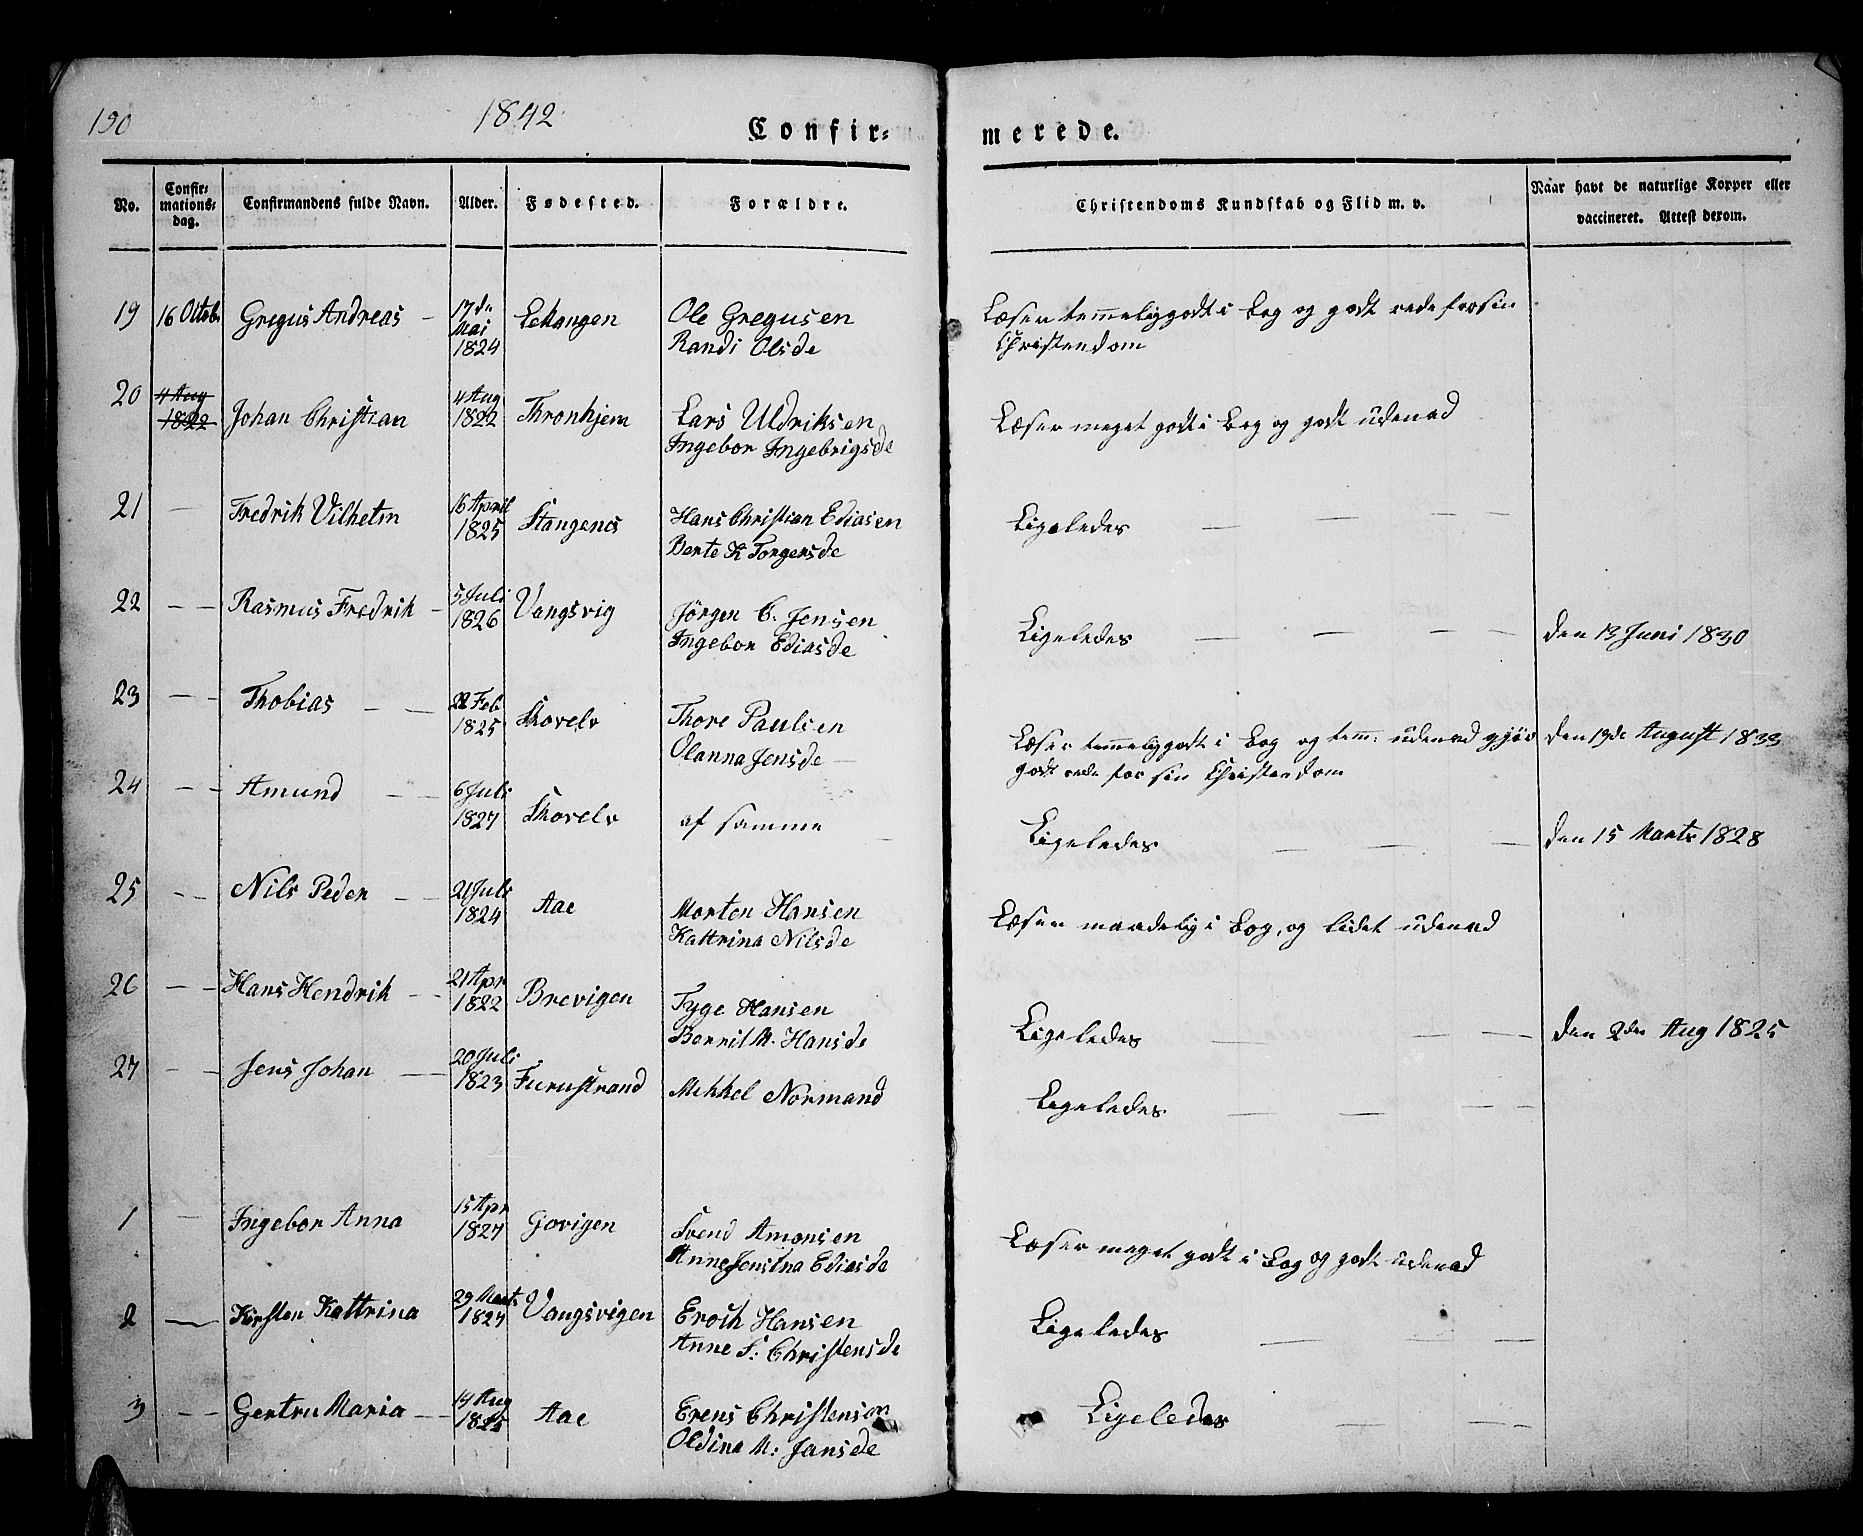 190
1842
Confir=
merede.
No.
Confir=
mations=
dag.
Confirmandens fulde Navn.
Alder.
Fødested.
Forældre.
Christendoms Kundskab og Flid m. v.
Naar havt de naturlige Kopper eller
vaccineret. Attest derom.
19 16 Octob. Gregus Andreas 17de Mai 1824
Ole Gregusen
Randi Olsde
Læser temeliggodt i Bog og godt rede for sin
Christendom
20 4 Aug 1822 Johan Christian 4 Aug 1822 Thronhjem
Lars Uldriksen
Ingebor Ingebrigsde
Læser meget godt i Bog og godt udenad
21 — Fredrik Vilhelm 16 April 1825 Stangenes
Hans Christian Ediasen
Berte K Torgersde
Ligeledes — — —
22 — — Rasmus Fredrik — 5 Juli 1826 Vangsvig
Jörgen C. Jensen
Ingebor Ediasde
Ligeledes — — — — den 13 Juni 1830
23 — — Thobias — — Feb 1825 Skovelv
Thore Paulsen
Olanna Jensde —
Læser temeliggodt i Bog og tem: udenad gjör den 13de August 1833
godt rede for sin Christendom
24 — — Amund — — 6 Juli 1827 Skovelv
af samme —
Ligeledes — — — den 15 Marts 1828
25 — — Nils Peder — — 21 Juli 1824 Aae
Morten Hansen
Kattrina Nilsde
Læser maadelig i Bog, og lidet udenad
26 — — Hans Hendrik — — 21 Apr 1822 Brevigen
Tyge Hansen
Bernil M. Hansde
Ligeledes — — — den 2den Aug 1825
27 — — Jens Johan — — 20 Juli 1823 Furustrand
Mikkel Normand
Ligeledes — — — —
1 — Ingebor Anna 15 Apr 1827 Gjovigen
Svend Amonsen
Anne Jensina Ediasde
Læser meget godt i Bog og godt udenad
2 — Kirsten Kattrina 29 Marts 1827 Vangsvigen
Erich Hansen
Anne S: Christensde
Ligeledes — — —
3 — — Gertru Maria — — 14 Aug Aae
Erens Christensen
Oldina M: Jansde
Ligeledes — — —